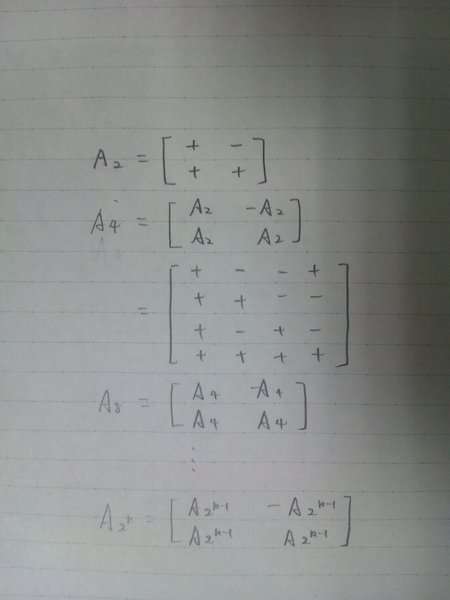 A₂ = [ + -
+ + ]
A₄ = [ A₂ -A₂
A₂ A₂ ]
= [ + - - +
+ + - -
+ - + -
+ + + + ]
A₈ = [ A₄ -A₄
A₄ A₄ ]
⋮
A₂ᵏ = [ A₂ᵏ⁻¹ - A₂ᵏ⁻¹
A₂ᵏ⁻¹ A₂ᵏ⁻¹ ]